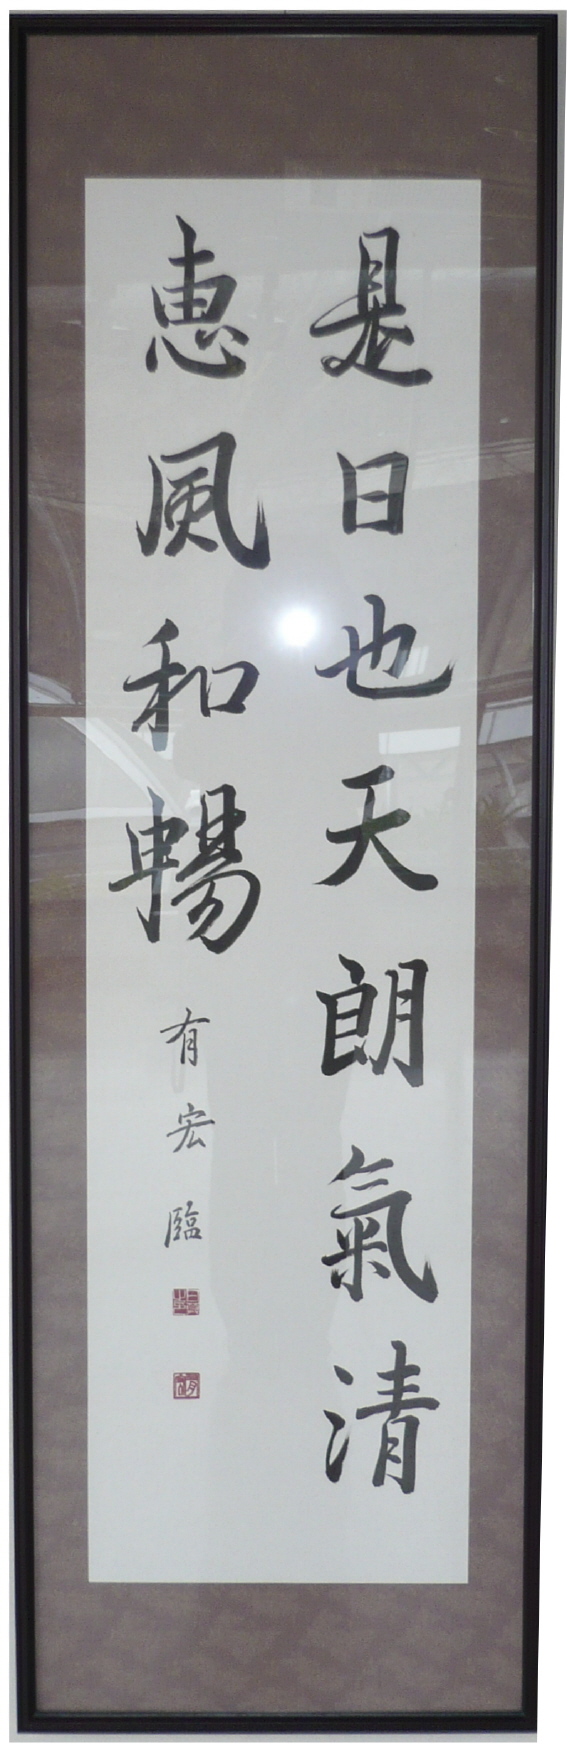 是日也天朗氣清
惠風和暢
有宏臨